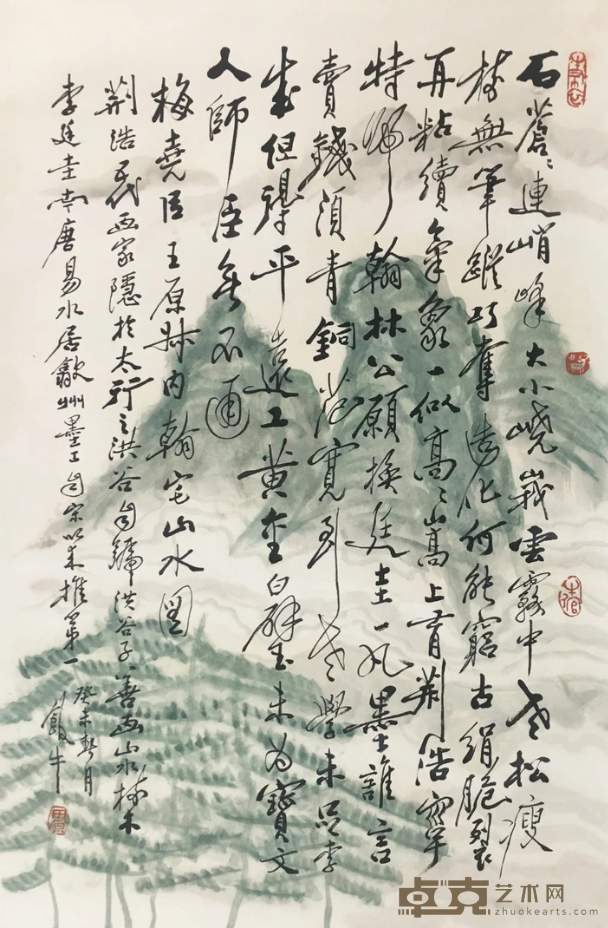 石蒼々連峭峰大小嶢峩雲霧中老松瘦
樹無筆蹤巧奪造化何能窮古絹脆裂
再粘續氣象一似高々嵩上有荆浩字
特歸翰林公願換廷圭一丸墨誰言
賣錢須青銅范寬到老學未足李
成但得平遠工黃金白璧未為寶文
人師臣無不通
梅堯臣王原叔内翰宅山水圖
荆浩五代画家隱於太行之洪谷自號洪谷子善画山水樹木
李廷圭南唐易水居歙州墨工自宋以来推第一
癸未
牛
卓克艺术网
zhuokearts.com